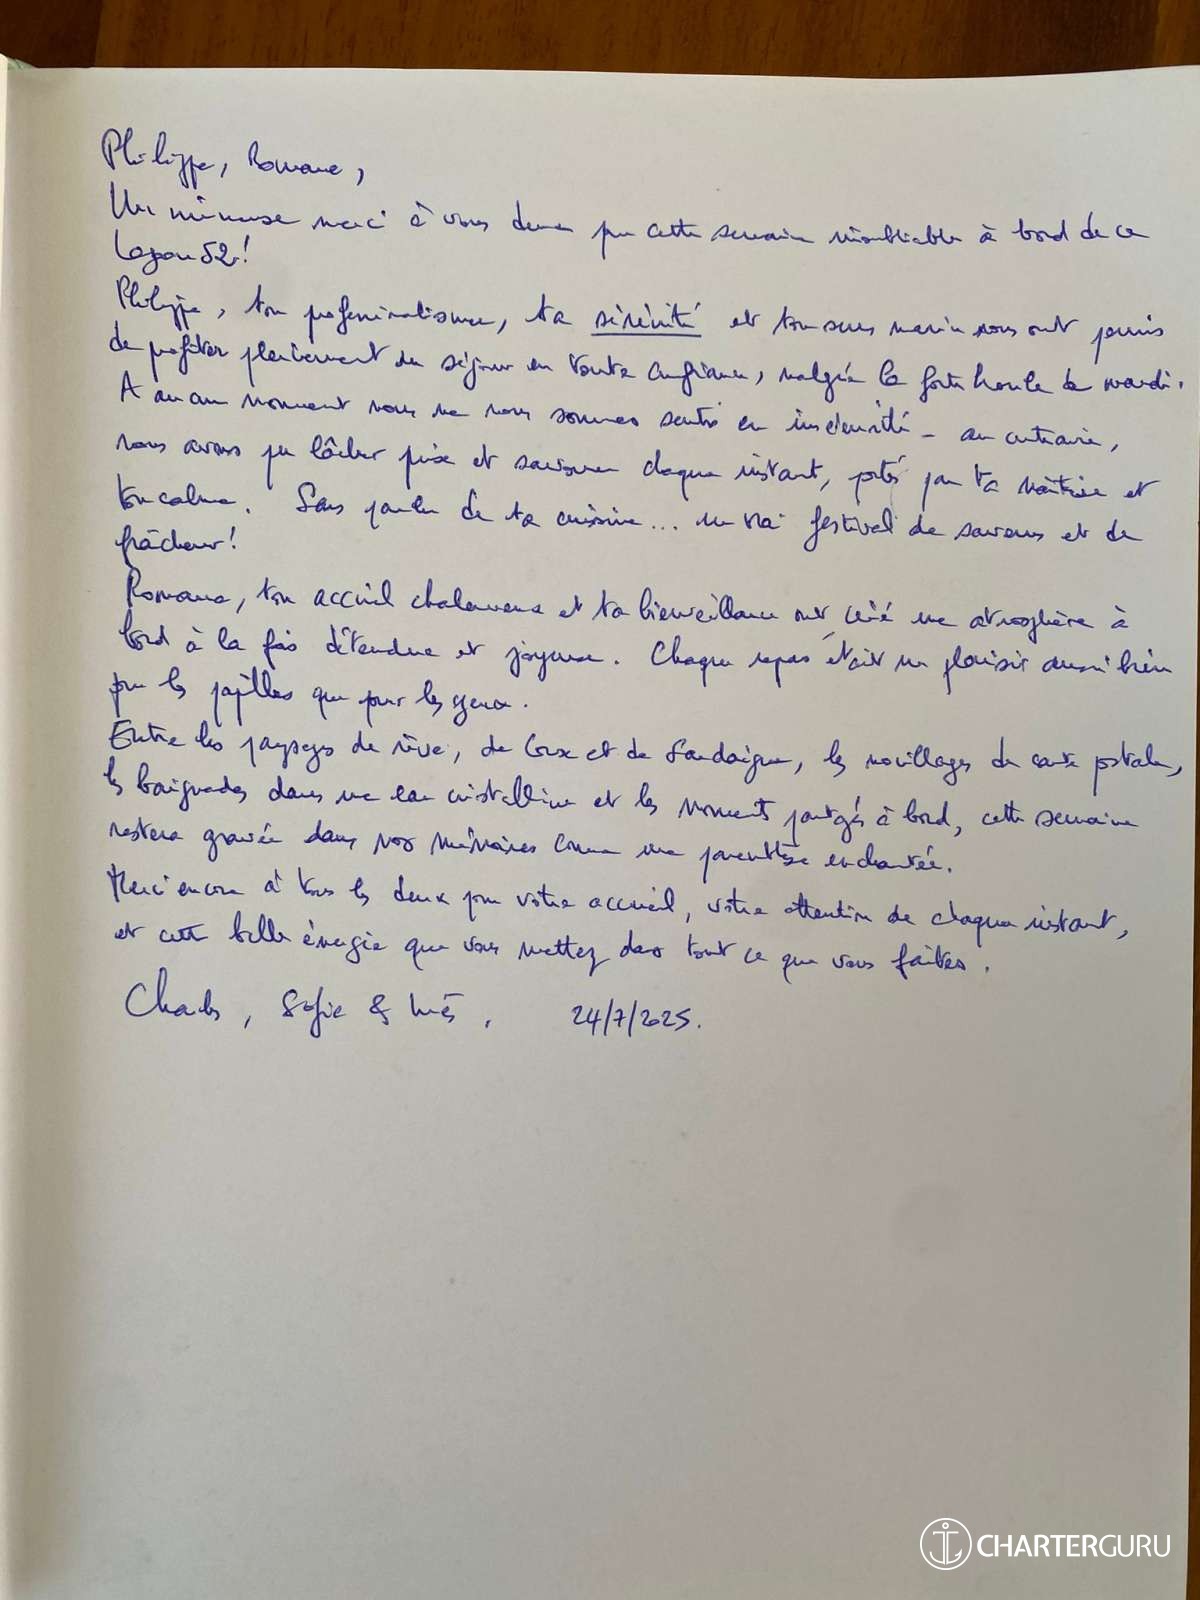 Philippe, Romane,
Un immense merci à vous deux pour cette semaine inoubliable à bord de ce
Lagoon 52!
Philippe, ton professionnalisme, ta sérénité et ton sens marin nous ont permis
de profiter pleinement du séjour en toute confiance, malgré la forte houle de mardi.
A aucun moment nous ne nous sommes sentis en insécurité - au contraire,
nous avons pu lâcher prise et savourer chaque instant, portés par ta maîtrise et
ton calme. Sans parler de ta cuisine... un vrai festival de saveurs et de
fraîcheur!
Romane, ton accueil chaleureux et ta bienveillance ont créé une atmosphère à
bord à la fois détendue et joyeuse. Chaque repas était un plaisir aussi bien
pour les papilles que pour les yeux.
Entre les paysages de rêve, de Corse et de Sardaigne, les mouillages de carte postale,
les baignades dans une eau cristalline et les moments partagés à bord, cette semaine
restera gravée dans nos mémoires comme une parenthèse enchantée.
Merci encore à tous les deux pour votre accueil, votre attention de chaque instant,
et cette belle énergie que vous mettez dans tout ce que vous faites.
Charles, Sofie & Inès. 24/7/2025.
CHARTERGURU